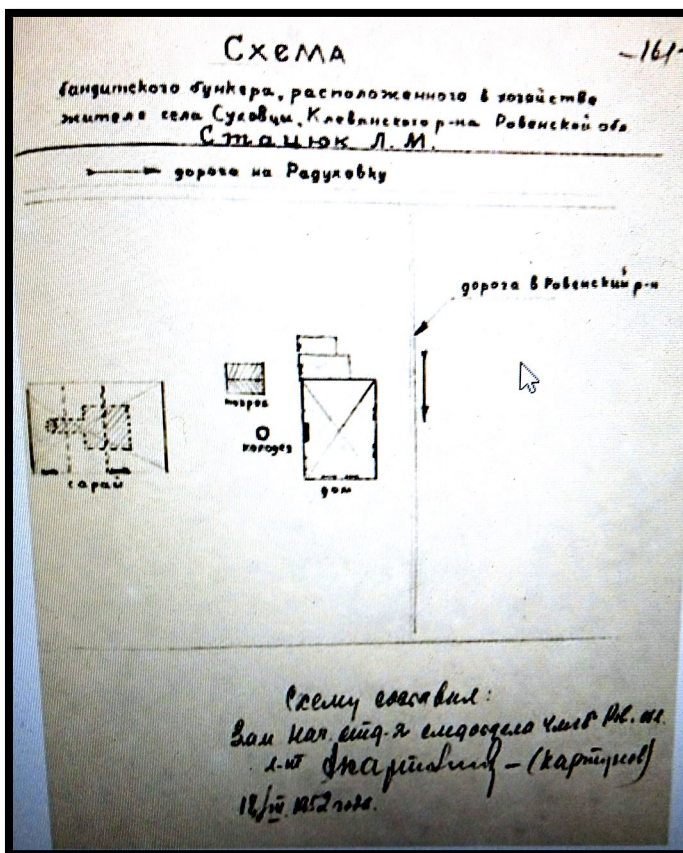 Схема
-161-
бандитского бункера, расположенного в хозяйстве
жителя села Суховцы, Клеванского р-на Ровенской обл
Стацюк Л. М.
дорога на Радуховку
дорога в Ровенский р-н
погреб
колодез
сарай
дом
Схему составил:
Зам нач. отд-я следотдела УМГБ Ров. обл.
л-нт (Картунов)
1952 года.